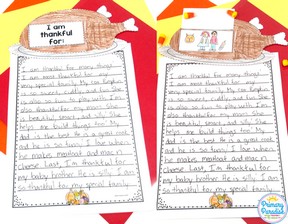 I am
thankful
for:
I am thankful for many things.
I am most thankful for my
very special family. My cat
is also so fun to play with. I'm
also thankful for my mom. She
is beautiful, smart, and silly. She
helps me build things too. My
dad is the best. He is a great cook
and he is so funny. I like when
he makes meatloaf and mac n
cheese. Last, I'm thankful for
my baby brother. He is silly. I am
so thankful for my special family.
I am thankful for many things.
I am most thankful for my
very special family. My cat
is also so fun to play with. I'm
also thankful for my mom. She
is beautiful, smart, and silly. She
helps me build things too. My
dad is the best. He is a great
cook and he is so funny. I like
when he makes meatloaf and mac n
cheese. Last, I'm thankful for
my baby brother. He is silly. I am
so thankful for my special family.
Primary
Paradise